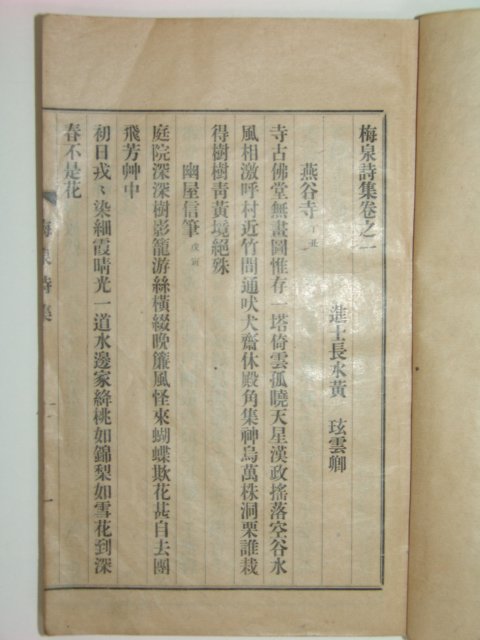 梅泉詩集卷之一
進士長水黃 玹雲卿
燕谷寺 丁丑
寺古佛堂無畫圖惟存一塔倚雲孤曉天星漢政搖落空谷水
風相激呼村近竹間通吠犬齋休殿角集神烏萬株洞栗誰栽
得樹樹靑黃境絕殊
幽屋信筆 戊寅
庭院深深樹影籠游絲橫綴晩簾風怪來蝴蝶欺花甚自去團
飛芳艸中
初日戎〻染細霞晴光一道水邊家絳桃如錦梨如雪花到深
春不是花
梅泉詩集
一